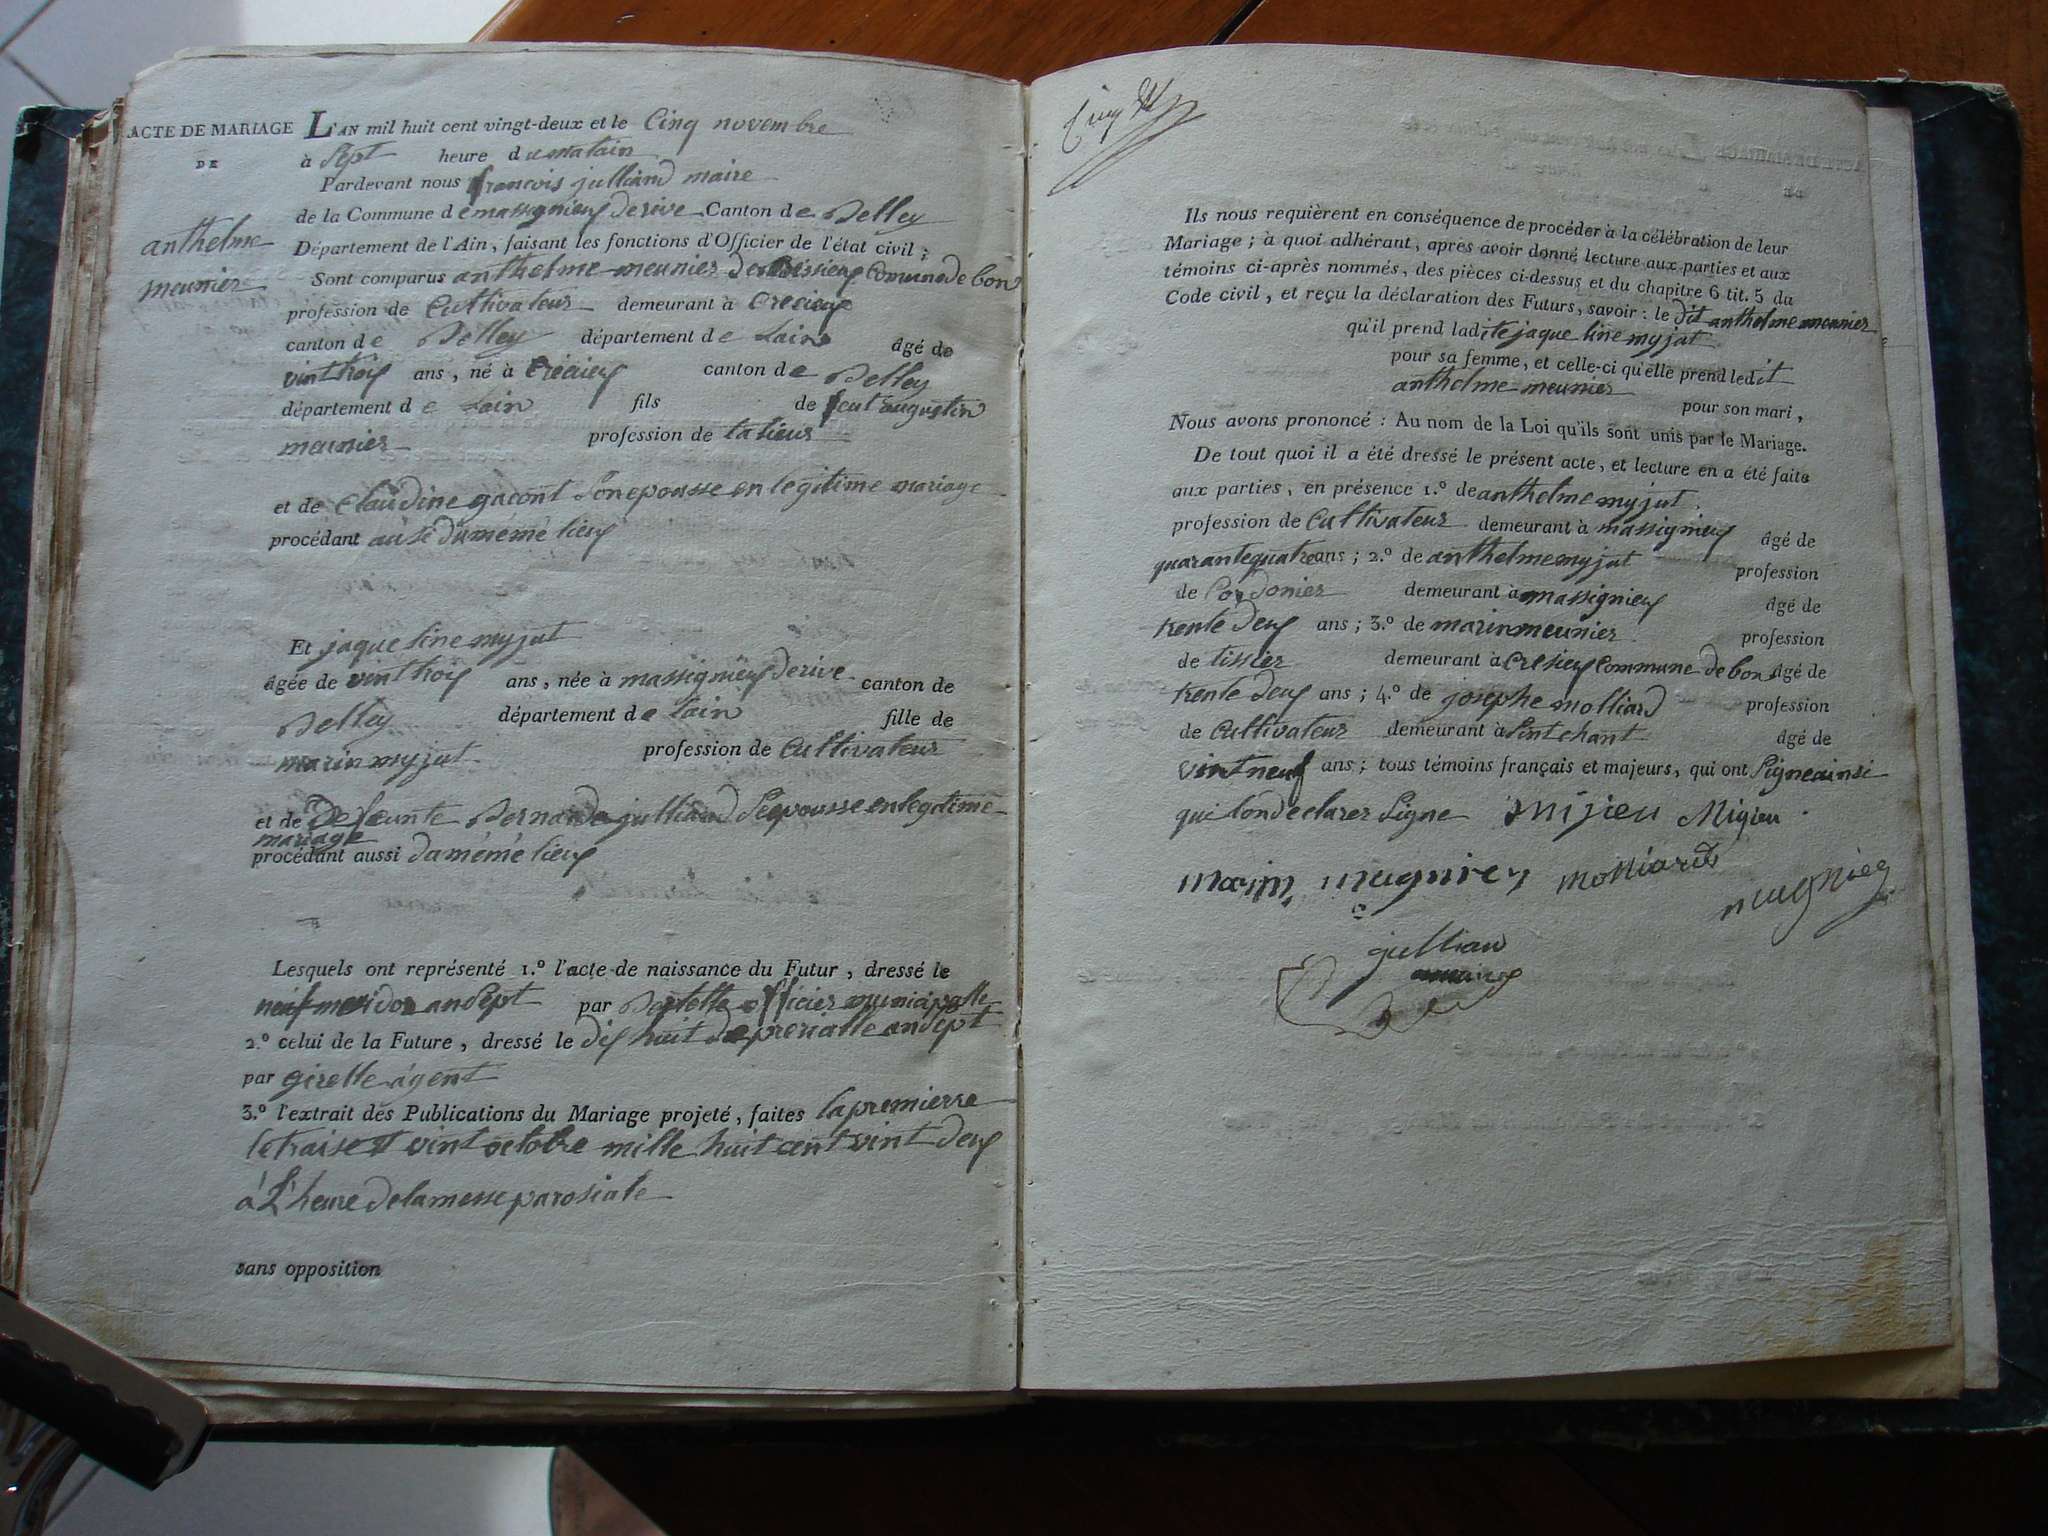 ACTE DE MARIAGE
DE
anthelme
meunier
L'AN mil huit cent vingt-deux et le Cinq novembre
à Sept heure du matain
Pardevant nous francois julliard maire
de la Commune de massignieux derive Canton de Belley
Département de l'Ain, faisant les fonctions d'Officier de l'état civil;
Sont comparus anthelme meunier de Comune de bon
profession de Cultivateur demeurant à
canton de Belley département de Lain âgé de
vintrois ans, né à canton de Belley
département de Lain fils de feut augustin
meunier profession de
et de Claudine gacont Son epousse en legitime mariage
procédant du méme lieux
Et jaque line myjat
âgée de vintrois ans, née à massignieux derive canton de
Belley département de Lain fille de
marin myjat profession de Cultivateur
et de Defeunte Bernarda julliard Sepousse en legitime
mariage
procédant aussi da méme lieux
Lesquels ont représenté 1.º l'acte de naissance du Futur, dressé le
neuf mesidor an Sept par officier municipalle
2.º celui de la Future, dressé le dix huit de prerialle an Sept
par girelle agent
3.º l'extrait des Publications du Mariage projeté, faites la premierre
le traise et vint octobre mille huit cent vint deux
à L'heure de la messe parosiale
sans opposition
Ils nous requièrent en conséquence de procéder à la célébration de leur
Mariage; à quoi adhérant, après avoir donné lecture aux parties et aux
témoins ci-après nommés, des pièces ci-dessus et du chapitre 6 tit. 5 du
Code civil, et reçu la déclaration des Futurs, savoir: le dit anthelme meunier
qu'il prend ladite jaque line myjat
pour sa femme, et celle-ci qu'elle prend ledit
anthelme meunier
pour son mari,
Nous avons prononcé: Au nom de la Loi qu'ils sont unis par le Mariage.
De tout quoi il a été dressé le présent acte, et lecture en a été faite
aux parties, en présence 1.º de anthelme myjat
profession de Cultivateur demeurant à massignieux âgé de
quarantequatre ans; 2.º de anthelme myjat profession
de Cordonier demeurant à massignieux âgé de
trente deux ans; 3.º de marin meunier profession
de tissier demeurant à Cresieux Commune de bon âgé de
trente deux ans; 4.º de josephe molliard profession
de Cultivateur demeurant à Sintchant âgé de
vintneuf ans; tous témoins français et majeurs, qui ont Signe ainsi
qui lon declarer Signe Mijieu Migieu
marin mugnier Molliard mugnier
jullian
maire